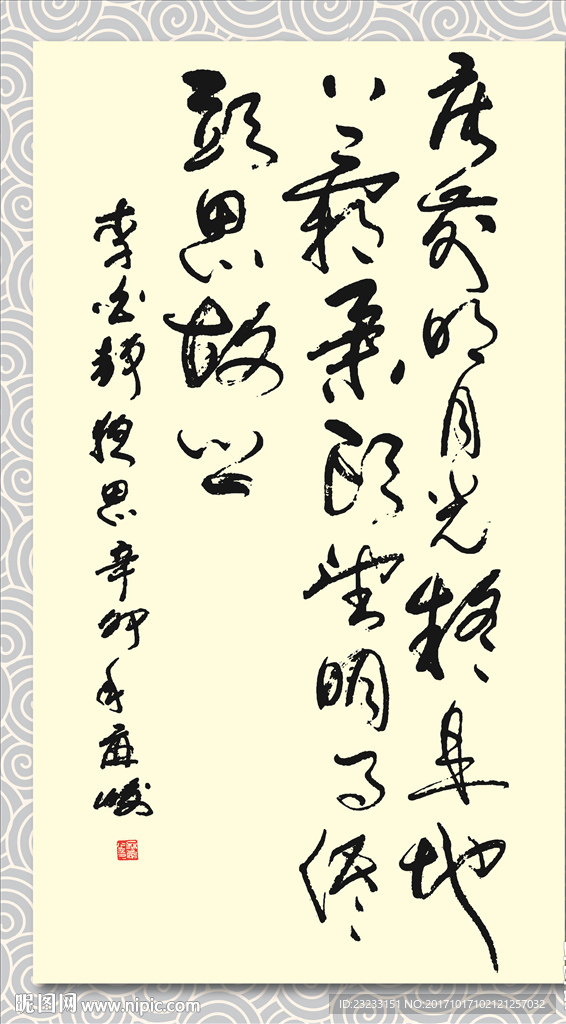 床前明月光疑是地
上霜舉頭望明月低
頭思故鄉
李白静夜思辛卯年
昵图网 www.nipic.com
ID:23233151 NO:20171017102121257032